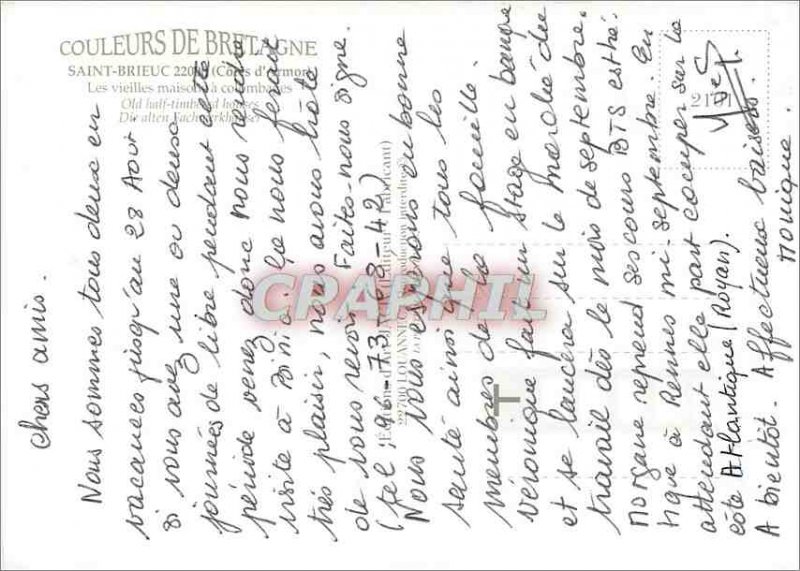 COULEURS DE BRETAGNE
SAINT-BRIEUC (Côtes d'Armor)
Les vieilles maisons à colombages
Old half-timbered houses
Die alten Fachwerkhäuser
2101
CPAPHIL
Chers amis.
Nous sommes tous deux en
vacances jusqu'au 28 Août
si vous avez une ou deux
journées de libre pendant cette
période venez donc nous rendre
visite à Binic. Ça nous ferait
très plaisir, nous avons hâte
de vous revoir. Faites-nous signe.
(tel: 96-73-68-42)
Nous vous espérons en bonne
santé ainsi que tous les
membres de la famille.
Véronique fait un stage en banque
et se lancera sur le marché du
travail dès le mois de septembre.
Morgane reprend ses cours BTS esthé
tique à Rennes mi-septembre. En
attendant elle part camper sur la
côte Atlantique (Royan).
A bientôt. Affectueux baisers.
Monique
Yves